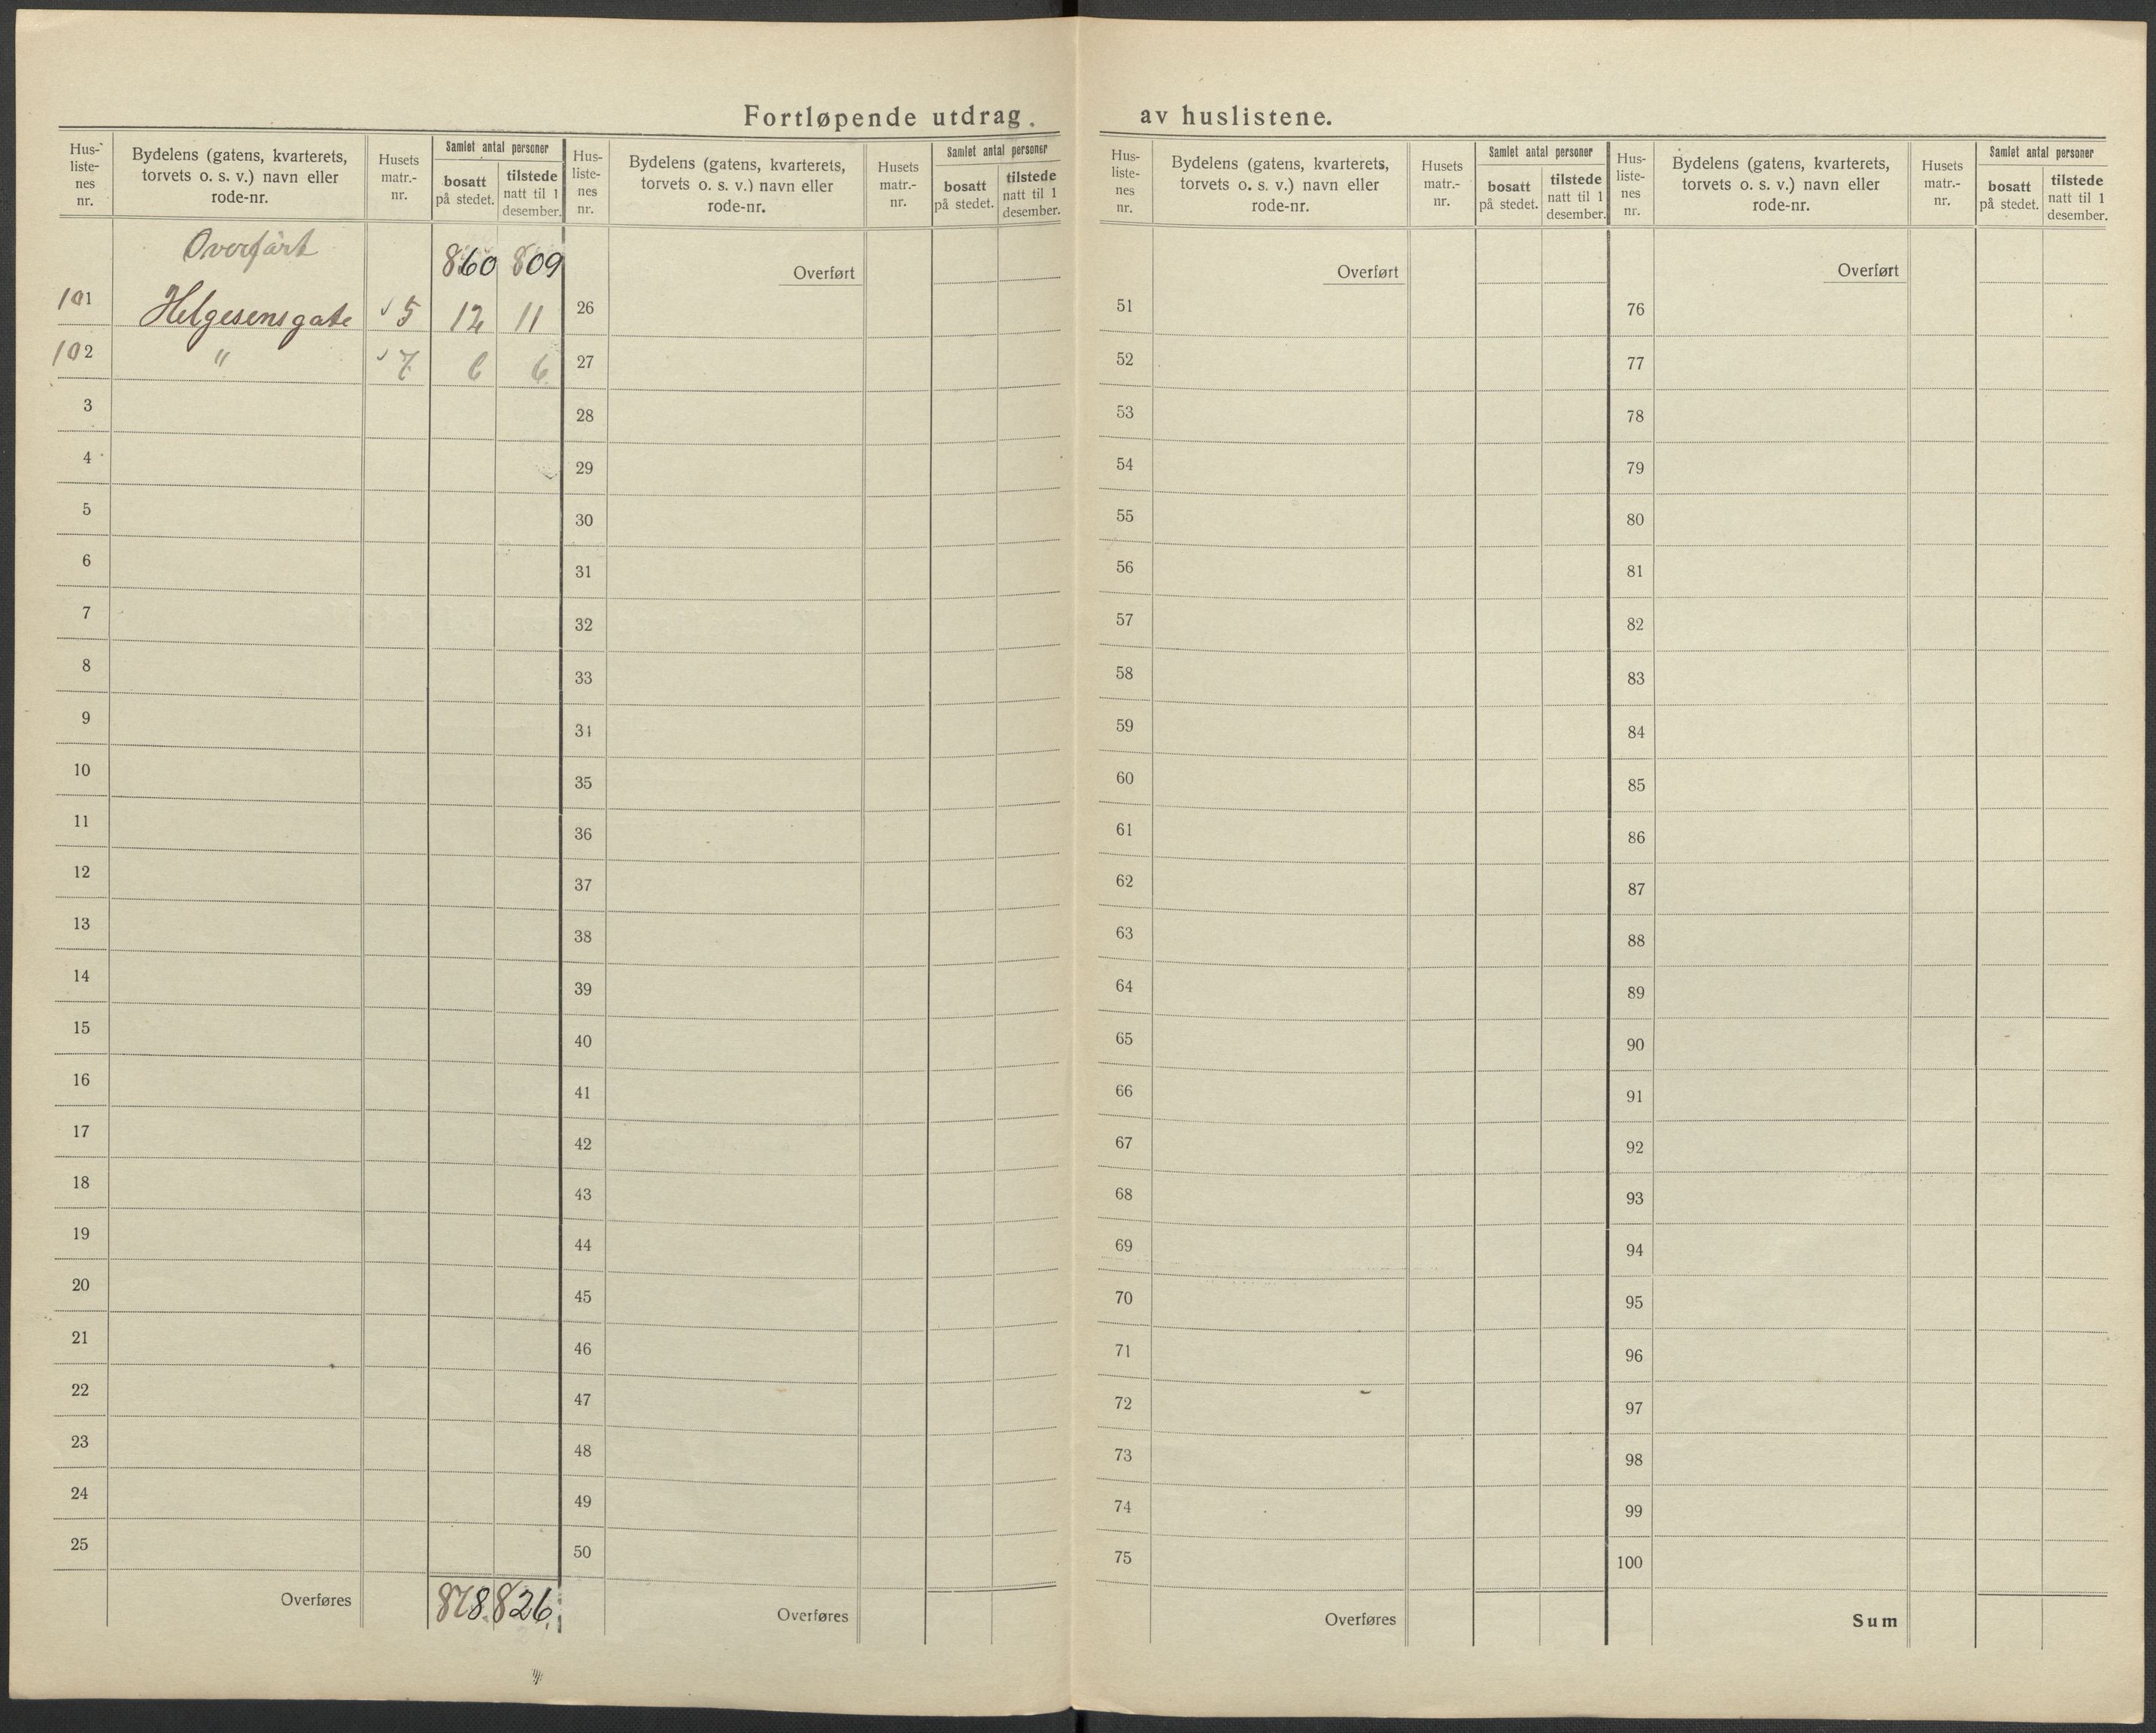 Fortløpende utdrag av huslistene.
Hus-liste-nes nr. | Bydelens (gatens, kvarterets, torvets o. s. v.) navn eller rode-nr. | Husets matr.-nr. | Samlet antal personer | bosatt på stedet. | tilstede natt til 1 desember.
Overført 860 809
101 Helgesensgate 5 12 11
102 " 7 6 6
3
4
5
6
7
8
9
10
11
12
13
14
15
16
17
18
19
20
21
22
23
24
25
Overføres 878. 826.
Hus-liste-nes nr. | Bydelens (gatens, kvarterets, torvets o. s. v.) navn eller rode-nr. | Husets matr.-nr. | Samlet antal personer | bosatt på stedet. | tilstede natt til 1 desember.
Overført
26
27
28
29
30
31
32
33
31
35
36
37
38
39
40
41
42
43
44
45
46
47
48
49
50
Overføres
Hus-liste-nes nr. | Bydelens (gatens, kvarterets, torvets o. s. v.) navn eller rode-nr. | Husets matr.-nr. | Samlet antal personer | bosatt på stedet. | tilstede natt til 1 desember.
Overført
51
52
53
54
55
56
57
58
59
60
61
62
63
64
65
66
67
68
69
70
71
72
73
74
75
Overføres
Hus-liste-nes nr. | Bydelens (gatens, kvarterets, torvets o. s. v.) navn eller rode-nr. | Husets matr.-nr. | Samlet antal personer | bosatt på stedet. | tilstede natt til 1 desember.
Overført
76
77
78
79
80
81
82
83
84
85
86
87
88
89
90
91
92
93
94
95
96
97
98
99
100
Sum